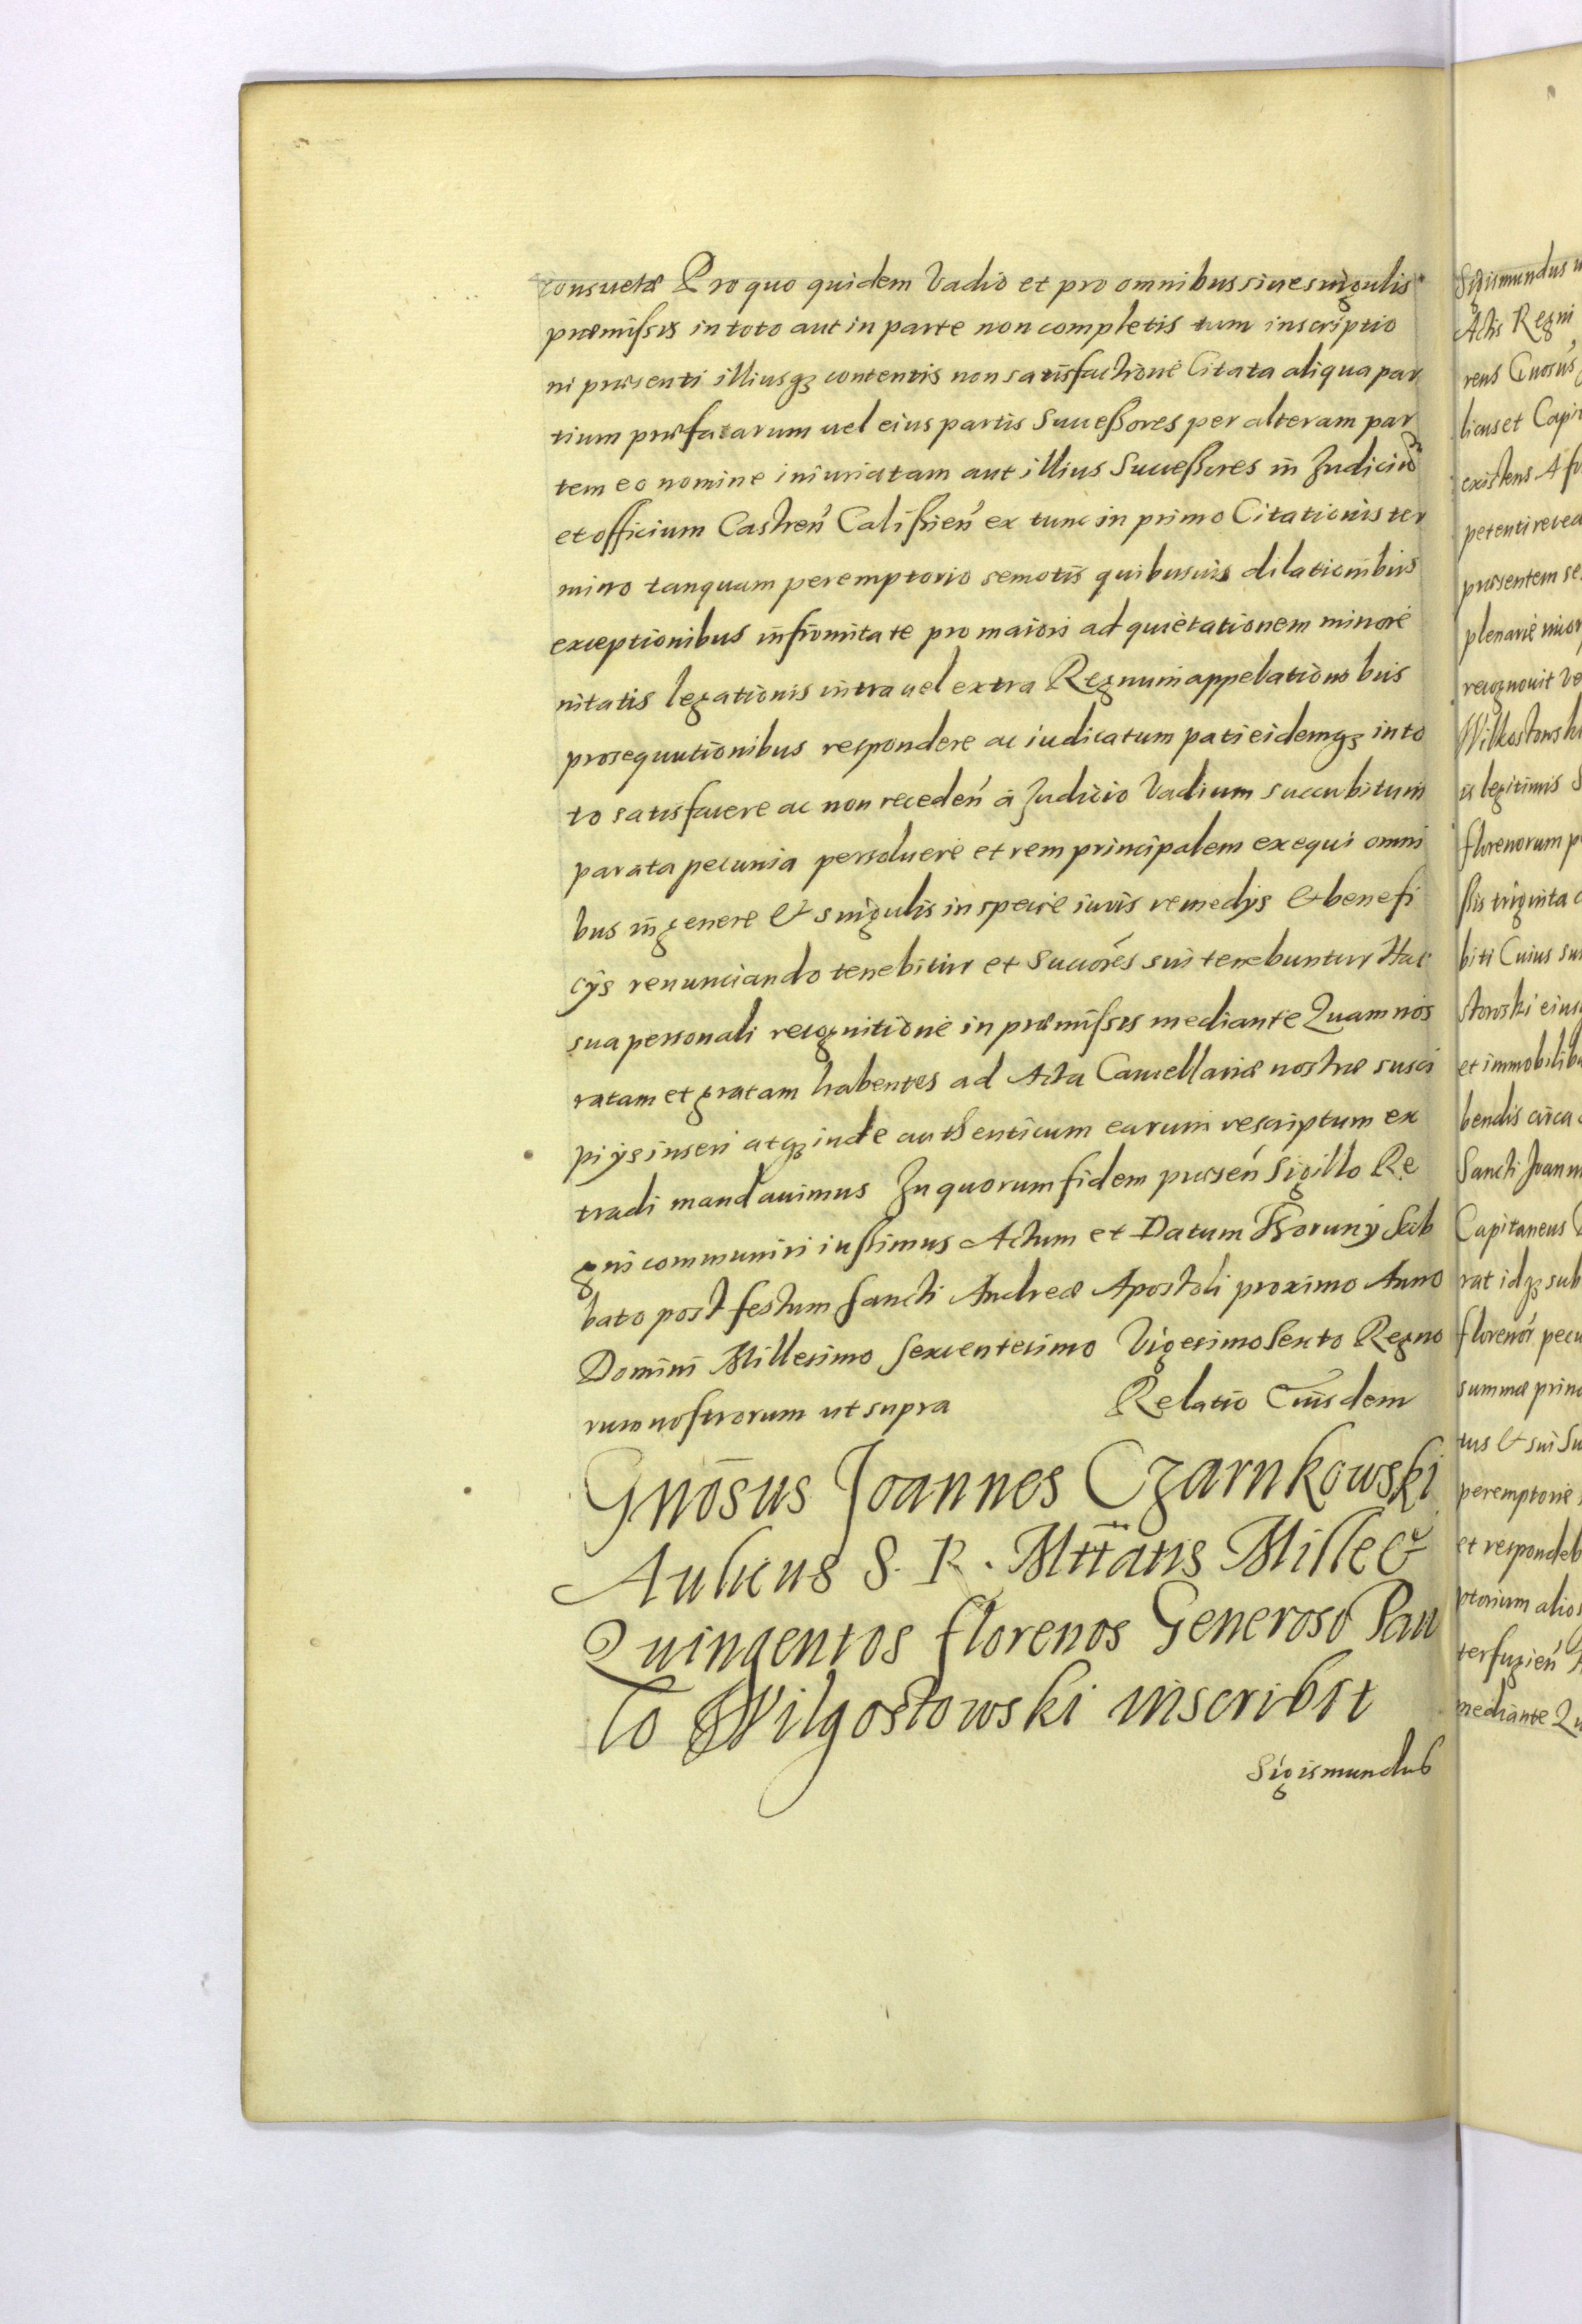 consuetæ Pro quo quidem Vadio et pro omnibus siue singulis
præmissis in toto aut in parte non completis tum inscriptio
ni præsenti illiusqꝫ contentis non satisfactione Citata aliqua par
tium præfatarum uel eius partis Successores per alteram par
tem eo nomine iniuriatam aut illius Successores in Judicium
et officium Castren̄ Calissien̄ ex tunc in primo Citationis ter
mino tanquam peremptorio semotis quibusuis dilationibus
exceptionibus infirmitate pro maiori ad quietationem minore
nitatis legationis intra uel extra Regnum appellationibus
prosequutionibus respondere ac iudicatum pati eidemqꝫ in to
to satisfacere ac non receden̄ à Judicio Vadium succubitum
parata pecunia persoluere et rem principalem exequi omni
bus in genere & singulis in specie iuris remedijs & benefi
cijs renunciando tenebitur et Succōres sui tenebuntur Hac
sua personali recognitione in præmissis mediante Quam nos
ratam et gratam habentes ad Acta Cancellariæ nostræ susci
pi ijs inseri atqꝫ inde authenticum earum rescriptum ex
tradi mandauimus In quorum fidem præsen̄ Sigillo Re
gni communiri iussimus Actum et Datum Thorunij Sab
bato post festum Sancti Andreæ Apostoli proximo Anno
Domini Millesimo Sexcentesimo Vigesimo Sexto Regno
rum nostrorum ut supra Relatio Eiusdem
Gnōsus Joannes Czarnkowski
Aulicus S. R. Mttatis Mille &
Quingentos florenos Generoso Pau
lo Wilgostowski inscribit
Sigismundus
Sigismundus
Actis Regni
rens Gnosus
licus et Capi
existens A fo
petenti recea
præsentem se
plenarie
recognouit
Wilkostowski
is legitimis S
florenorum p
ssis triginta
biti Cuius su
stowski eius
et immobilib
bendis circa
Sancti Joann
Capitaneus
rat idqꝫ sub
florenor̄ pecu
summæ princ
tus & sui Su
peremptorie
et respondeb
ptorium alios
terfugien̄
mediante Qu